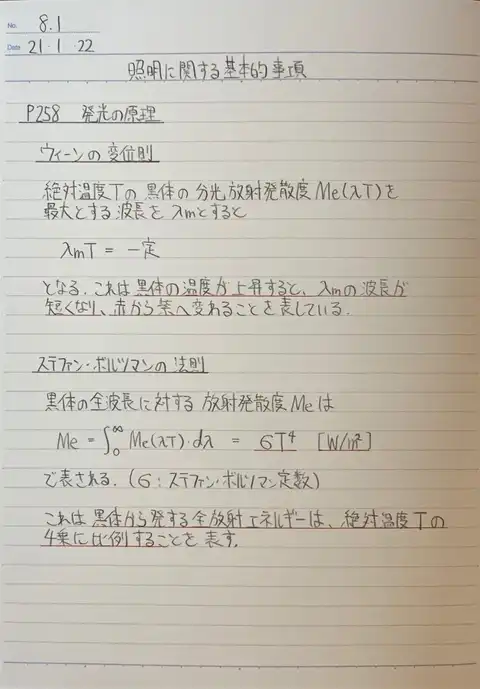 No. 8.1
Date 21・1・22
照明に関する基本的事項
P258 発光の原理
ウィーンの変位則
絶対温度Tの黒体の分光放射発散度Me(λT)を
最大とする波長をλmとすると
λmT = 一定
となる. これは黒体の温度が上昇すると、λmの波長が
短くなり、赤から紫へ変わることを表している.
ステファン・ボルツマンの法則
黒体の全波長に対する放射発散度Meは
Me = ∫₀^∞ Me(λT)・dλ = σT⁴ [W/m²]
で表される. (σ: ステファン・ボルツマン定数)
これは黒体から発する全放射エネルギーは、絶対温度Tの
4乗に比例することを表す.